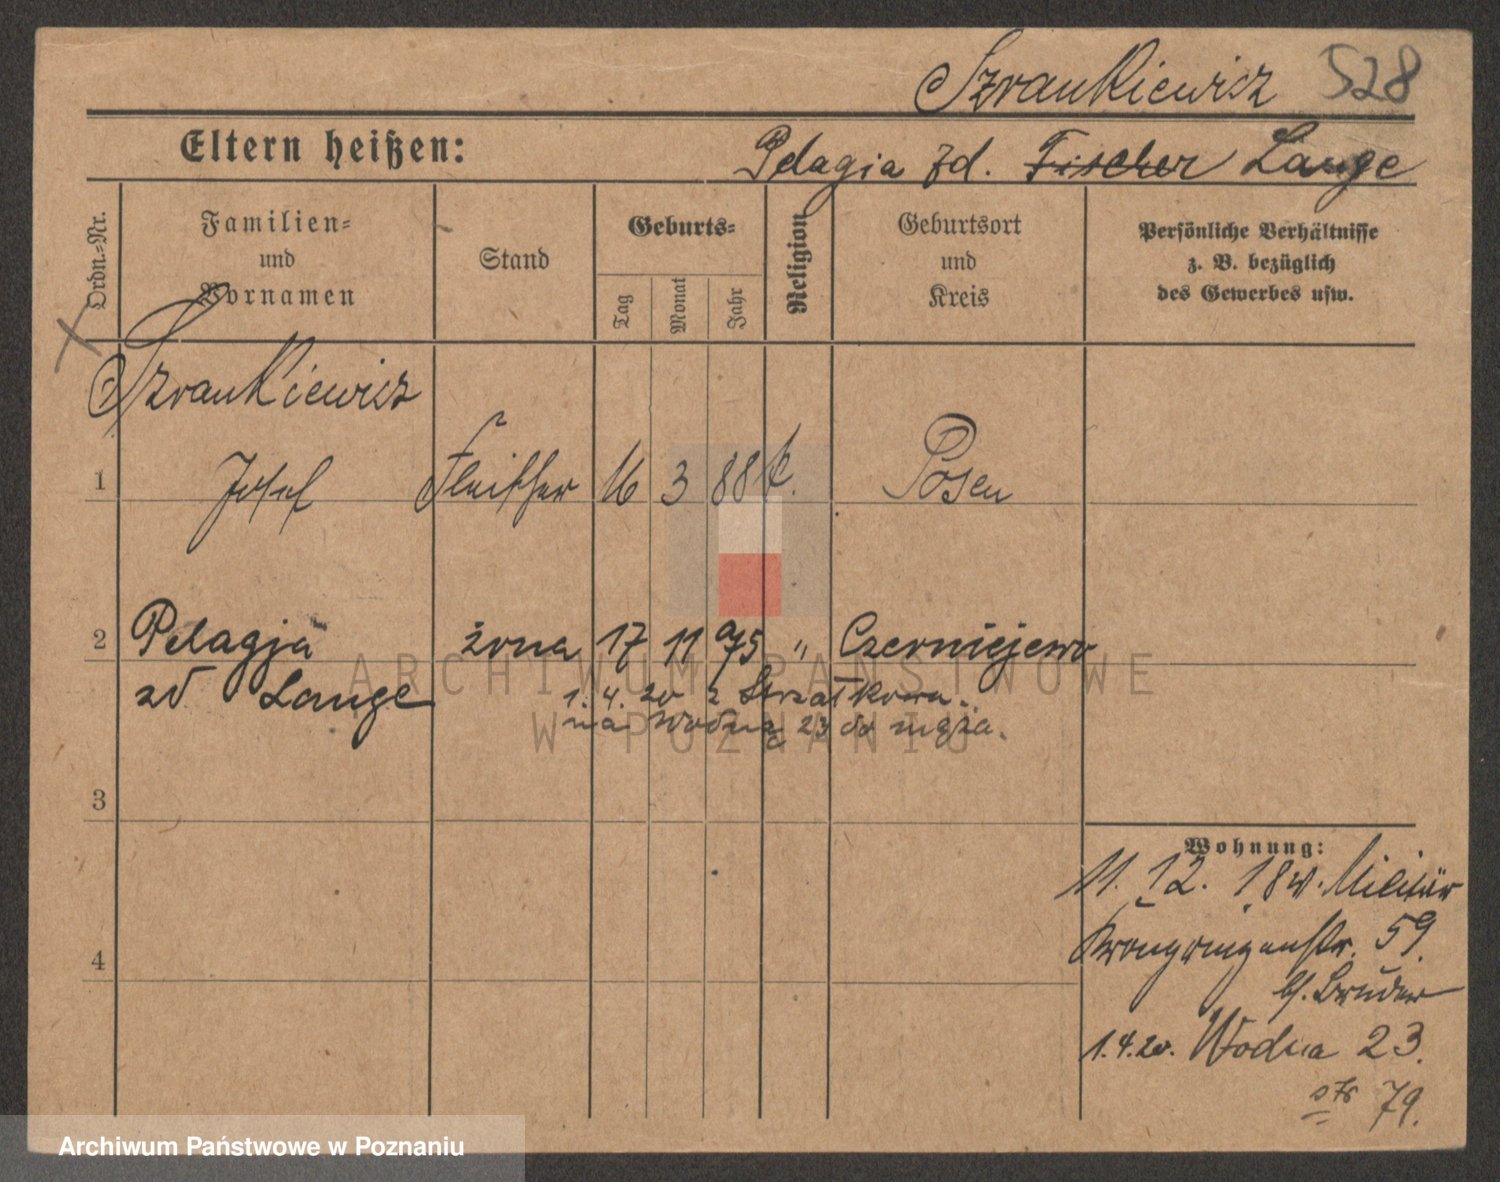 Szrankiewicz 528
Eltern heißen:
Pelagia zd. Fischer Lange
Ordn.-Nr.
Familien-
und
Vornamen
Stand
Geburts-
Tag
Monat
Jahr
Religion
Geburtsort
und
Kreis
Persönliche Verhältnisse
z. B. bezüglich
des Gewerbes usw.
Szrankiewicz
1 Josef Fleischer 16 3 88 k. Posen
2 Pelagja żona 17 11 95 " Czerniejewo
zd Lange
1.4.20 z Strzałkowa.
na Wodna 23 do męża.
3
4
Wohnung:
11. 12. 18 v. Militär
Kronprinzenstr. 59.
b/. Bruder
1.4.20. Wodna 23.
str 79.
ARCHIWUM PAŃSTWOWE
W POZNANIU
Archiwum Państwowe w Poznaniu